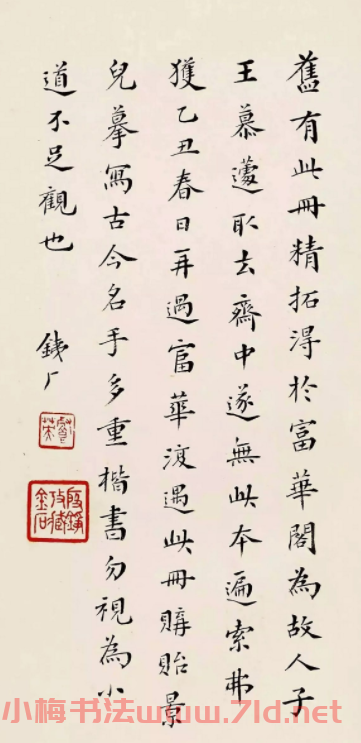 舊有此冊精拓淂於富華閣為故人子
王慕蘧取去齋中遂無此本遍索弗
獲乙丑春日再過富華復遇此冊購貽景
兒摹寫古今名手多重楷書勿視為小
道不足觀也
銕厂
小梅书法www.7ld.net